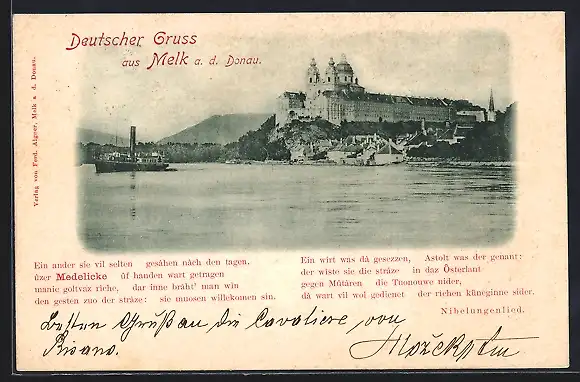 Deutscher Gruss
aus Melk a. d. Donau.
Verlag von Ferd. Aigner, Melk a d. Donau.
Ein ander sie vil selten gesâhen nâch den tagen,
ûzer Medelicke ûf handen wart getragen
manic goltvaz riche, dar inne brâht' man win
den gesten zuo der strâze: sie muosen willekomen sin.
Ein wirt was dâ gesezzen, Astolt was der genant:
der wiste sie die strâze in daz Österlant
gegen Mûtâren die Tuonouwe nider,
dâ wart vil wol gedienet der richen küneginne sider.
Nibelungenlied.
Besten Gruß an die Cavaliere von
Pisano.